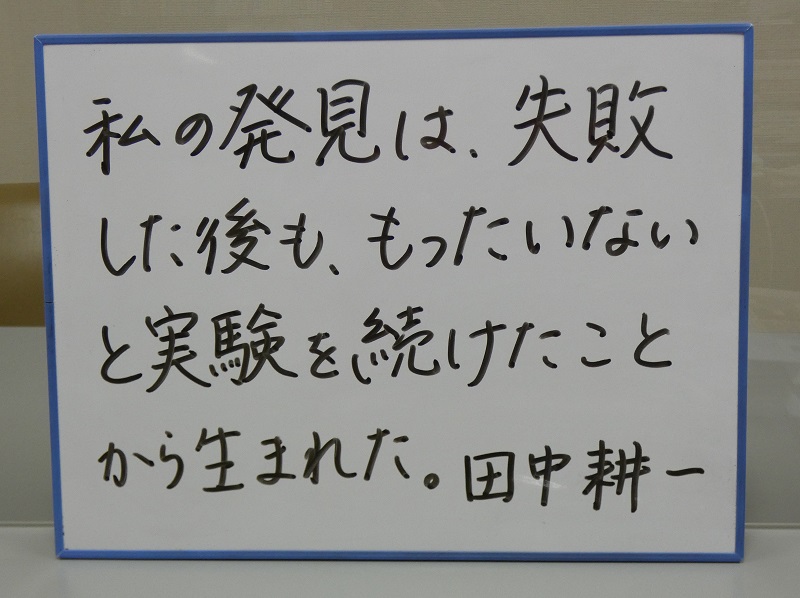 私の発見は、失敗
した後も、もったいない
と実験を続けたこと
から生まれた。田中耕一